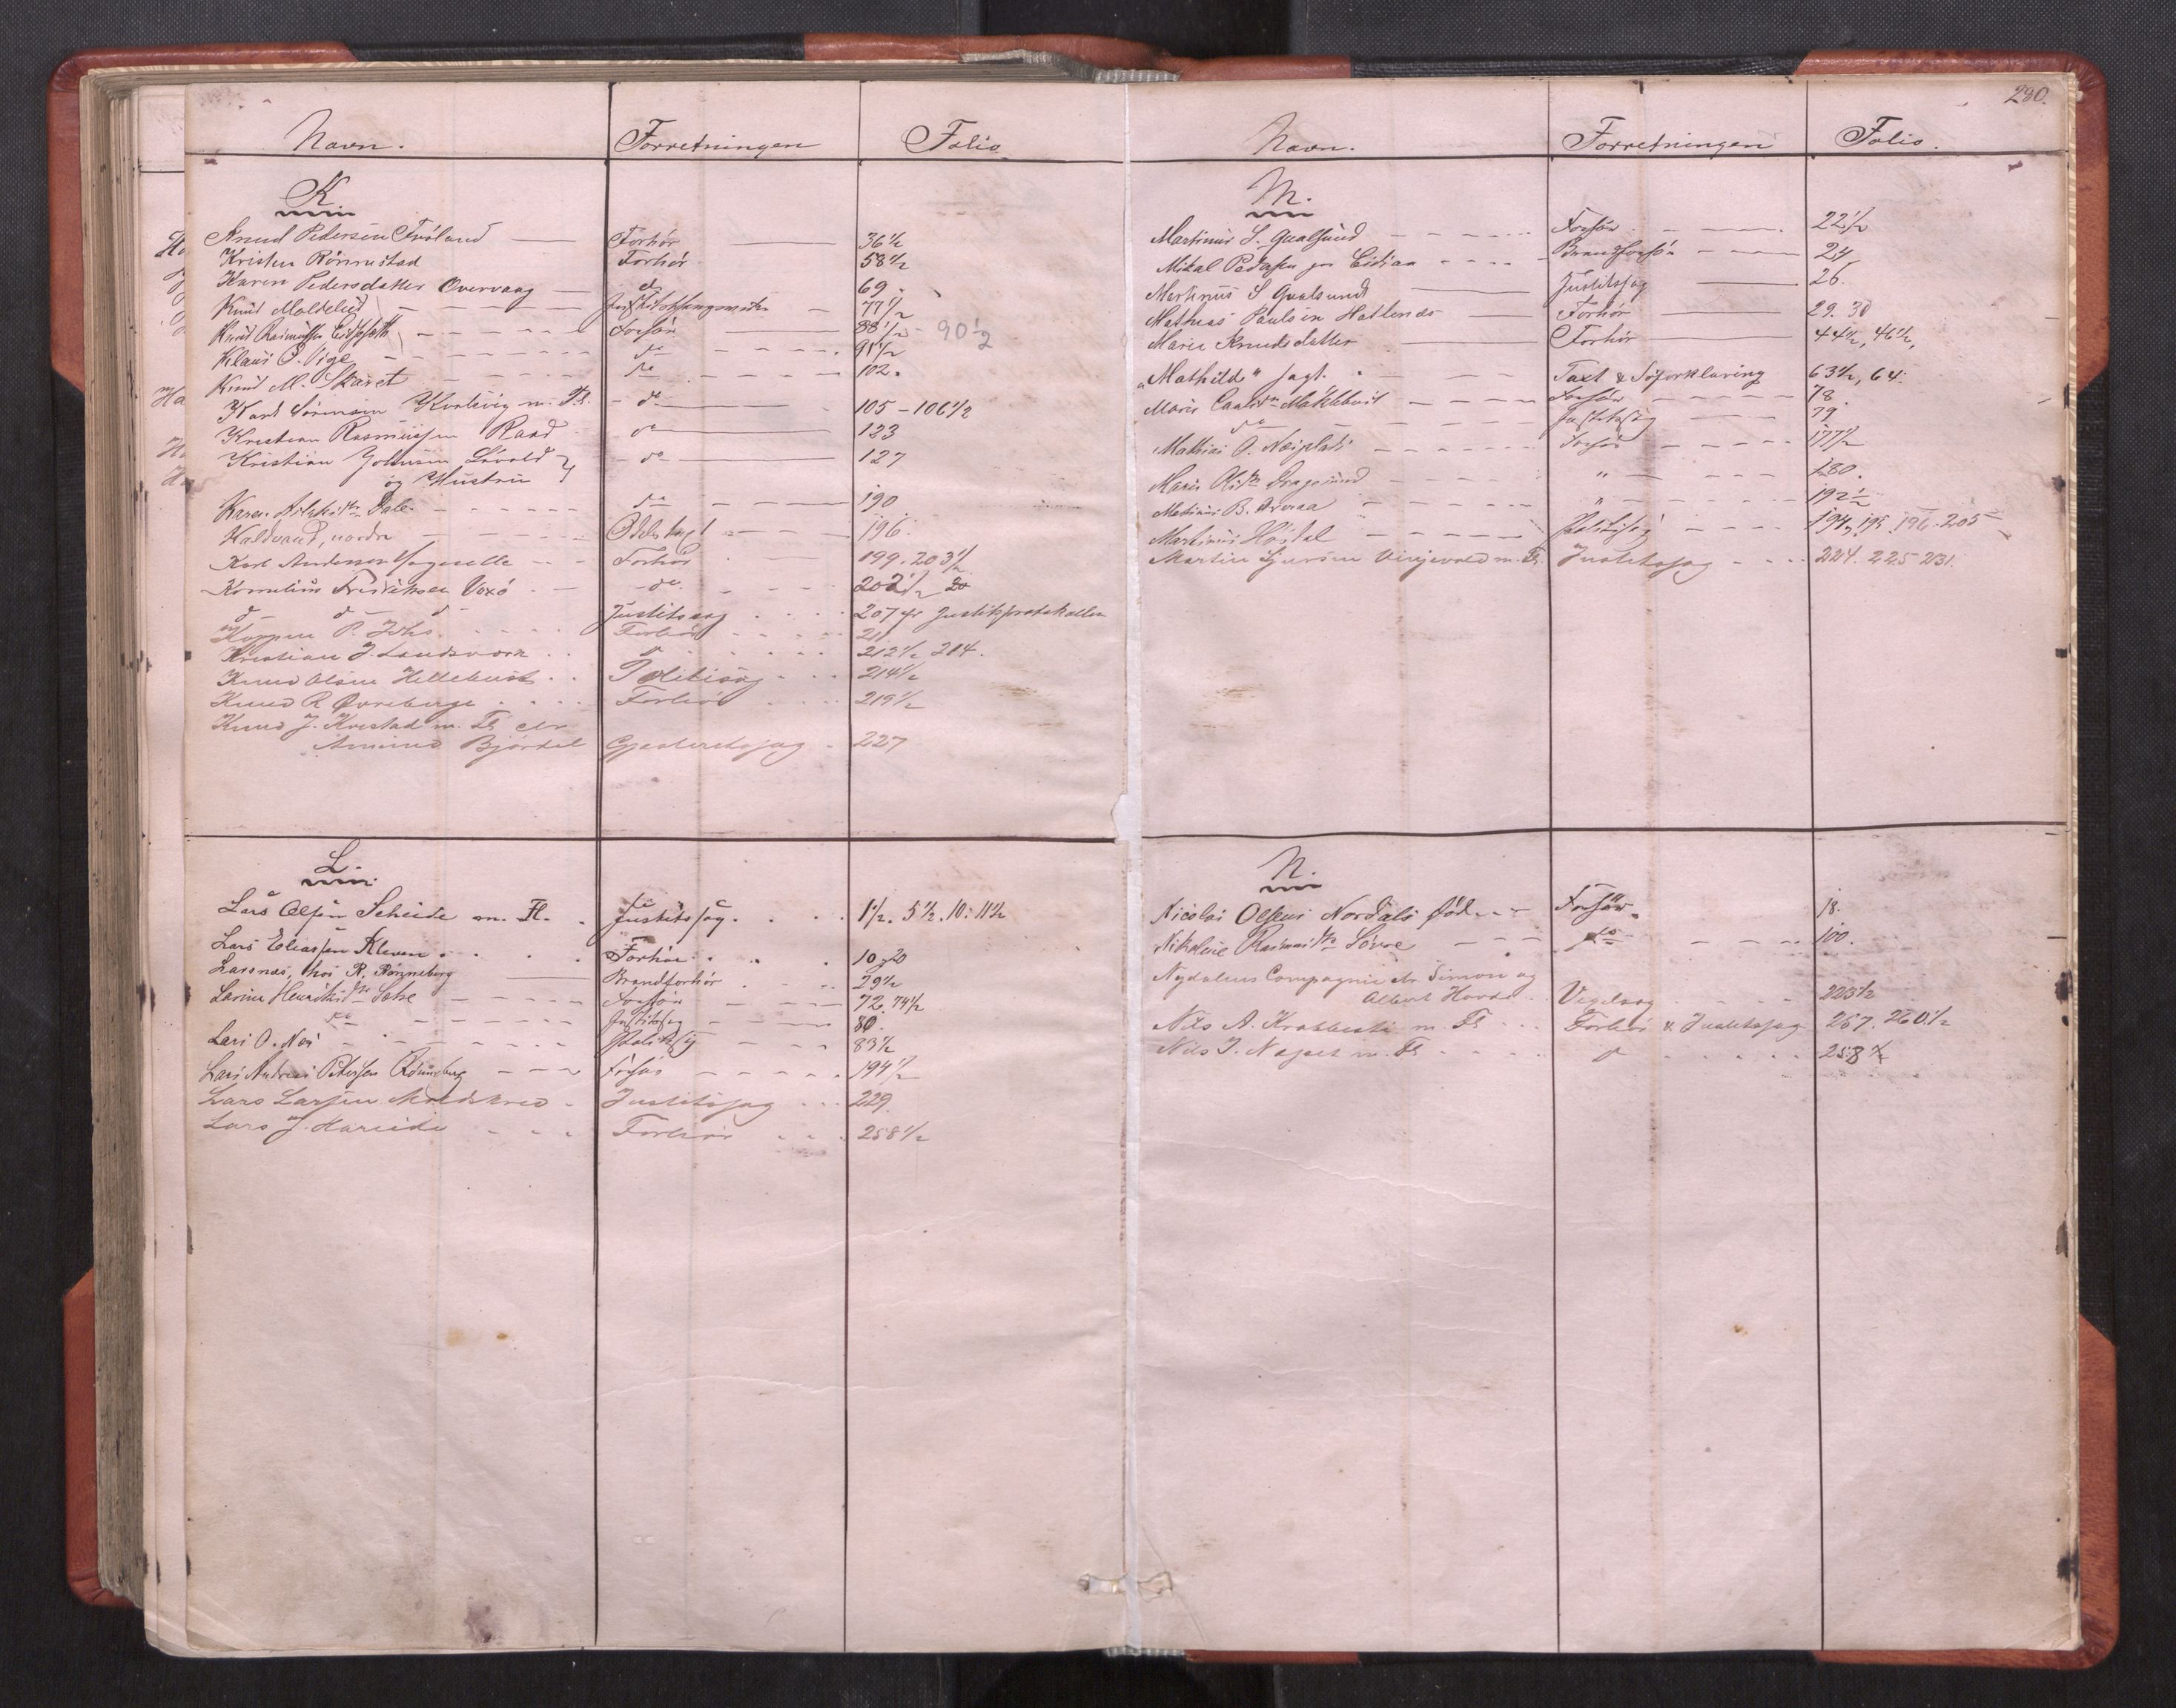 Navn. Forretningen Folio
K.
Knud Pedersen Fröland Forhör 36½
Kristen Rönnestad Forhör 58½
Karen Pedersdatter Overvaag do 69.
Knud Moldelid 77½
Knud Rasmussen Forhör 88½ - 90½
Klaus P. Vige do 91½
Knud M. Skaret do 102.
Karl m. Fl. do 105 - 106½
Kristian Rasmussen Raad do 123
Kristian Johnsen Lövold do 127
og Hustru
Karen Dale do 190
Koldvand, nordre 196.
Karl Andersen Forhör 199. 203½
Kornelius Fredriksen Voxö do 202½
d d d Justitssag 207 Justitsprotokollen
Koppen P. Johs. Forhör 211
Kristian J. Landsværk d 212½ 214.
Knud Olsen Hellebust Politisag 214½
Knud R Øvreberge Forhör 219½
Knud J. Kvistad m. Fl. ctr
Amund Bjørdal Gjesteretssag 227
L.
Lars Olsen Scheide m. Fl. Justitssag. 1½. 5½. 10. 11½
Lars Eliassen Kleven Forhör 10
Larsnæs, hos R. Rönneberg Brandforhör 29½
Larine Sætre Forhör 72. 74½
do Justitssag 80.
Lars O. Næs Politisag 83½
Lars Andreas Petersen Rønneberg Forhör 194½
Lars Larsen Justitssag 229.
Lars J. Hareide Forhör 258½
280.
Navn. Forretningen Folio.
M.
Martinus S. Qvalsund Forhör 22½
Mikal Pedersen Brandforhör 24
Martinus S Qvalsund Justitssag 26.
Mathias Paulsen Hatlenes Forhör 29. 30
Marie Knudsdatter Forhör 44½, 46½,
"Mathilde" Jagt. Taxt & Söforklaring 63½, 64.
Maris Forhör 78.
do Justitssag 79
Mathias O. Forhör 177½
Maris Dragsund " 180.
Mathias B. " 192½
Martinus Höidal Politisag 194, 195. 196. 205
Martin Sjursen Vinjevold m. Fl. Justitssag 224. 225 231.
N.
Nicolai Olsens Nordals död Forhör 18.
Nikoline Sövre do 100.
Nydalens Compagnie ctr Simon og
Albert Hovde Vexelsag 223½
Nils A. Krabbesti m. Fl. Forhör & Justitssag 257. 260½
Nils J. m. Fl. d 258½